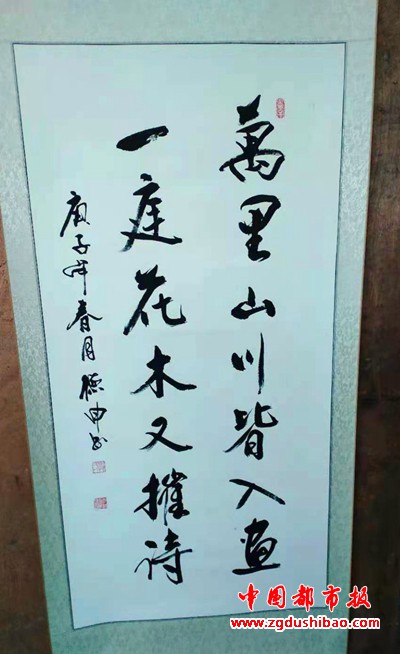 萬里山川皆入画
一庭花木又摧诗
庚子年春月德申书
中国都市报
www.zgdushibao.com